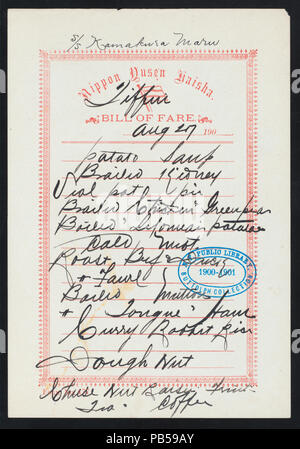 S/S Kamakura Maru
Nippon Yusen Kaisha.
Tiffin
BILL OF FARE.
Aug 27 190
Potato Soup
Boiled Kidney
Veal pot pie
Boiled Chicken Green peas
Boiled Potatoes
Cold Meat
Roast Beef
N.Y. PUBLIC LIBRARY
1900-1901
BUTTOLPH COLLECTION
& Fowl
Boiled Mutton
& Tongue Ham
Curry Rabbit Rice
Dough Nut
Cheese Nut
Tea Coffee
alamy
Image ID: PB59AY
www.alamy.com